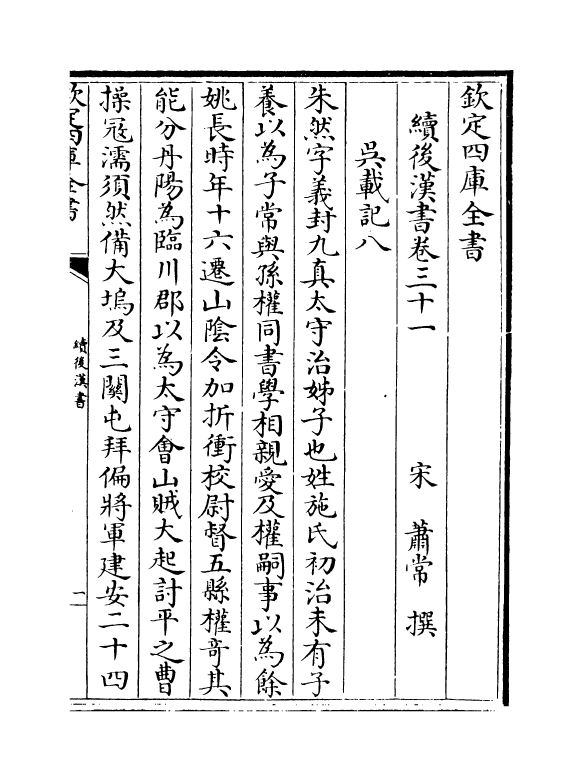 欽定四庫全書
續後漢書卷三十一
宋 蕭常 撰
吳載記八
朱然字義封九真太守治姊子也姓施氏初治未有子
養以為子常與孫權同書學相親愛及權嗣事以為餘
姚長時年十六遷山陰令加折衝校尉督五縣權奇其
能分丹陽為臨川郡以為太守會山賊大起討平之曹
操冦濡須然備大塢及三關屯拜偏將軍建安二十四
欽定四庫全書
續後漢書
一